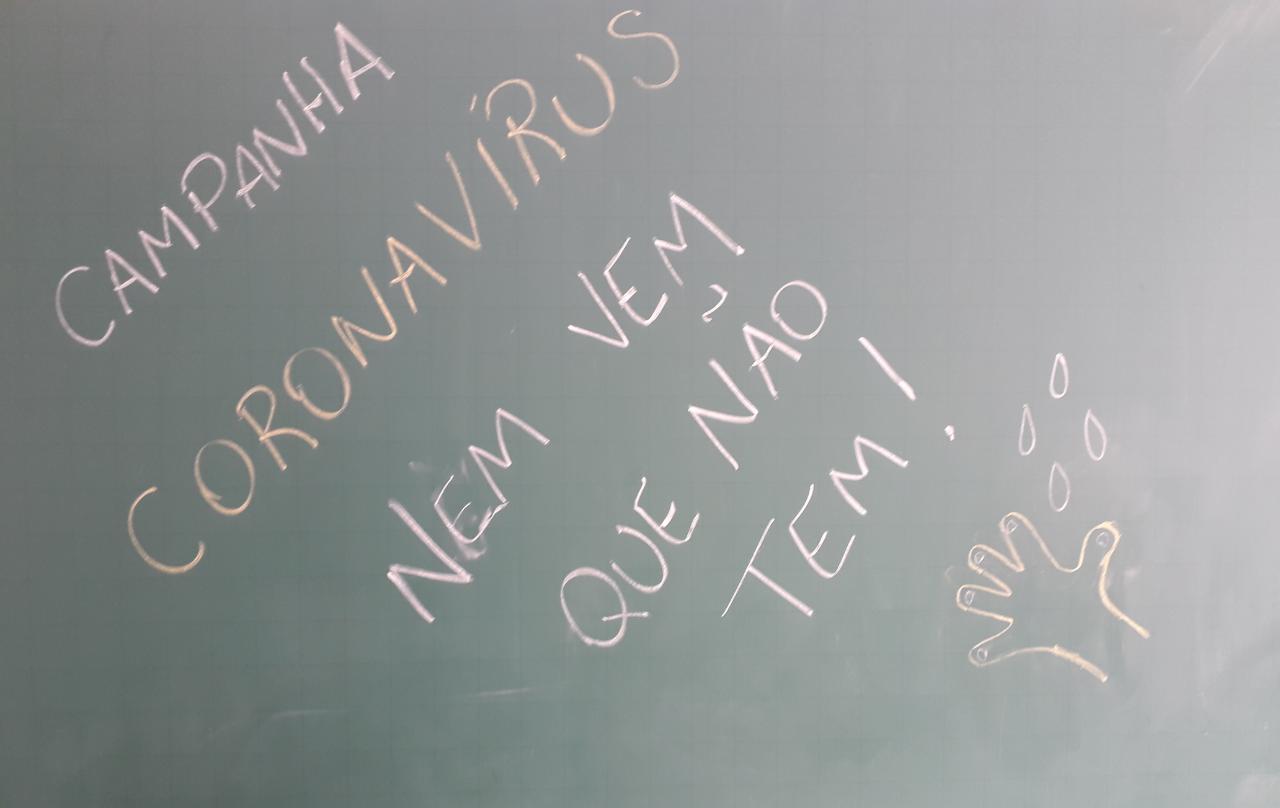 CAMPANHA
CORONAVÍRUS
NEM VEM
QUE NÃO
TEM!